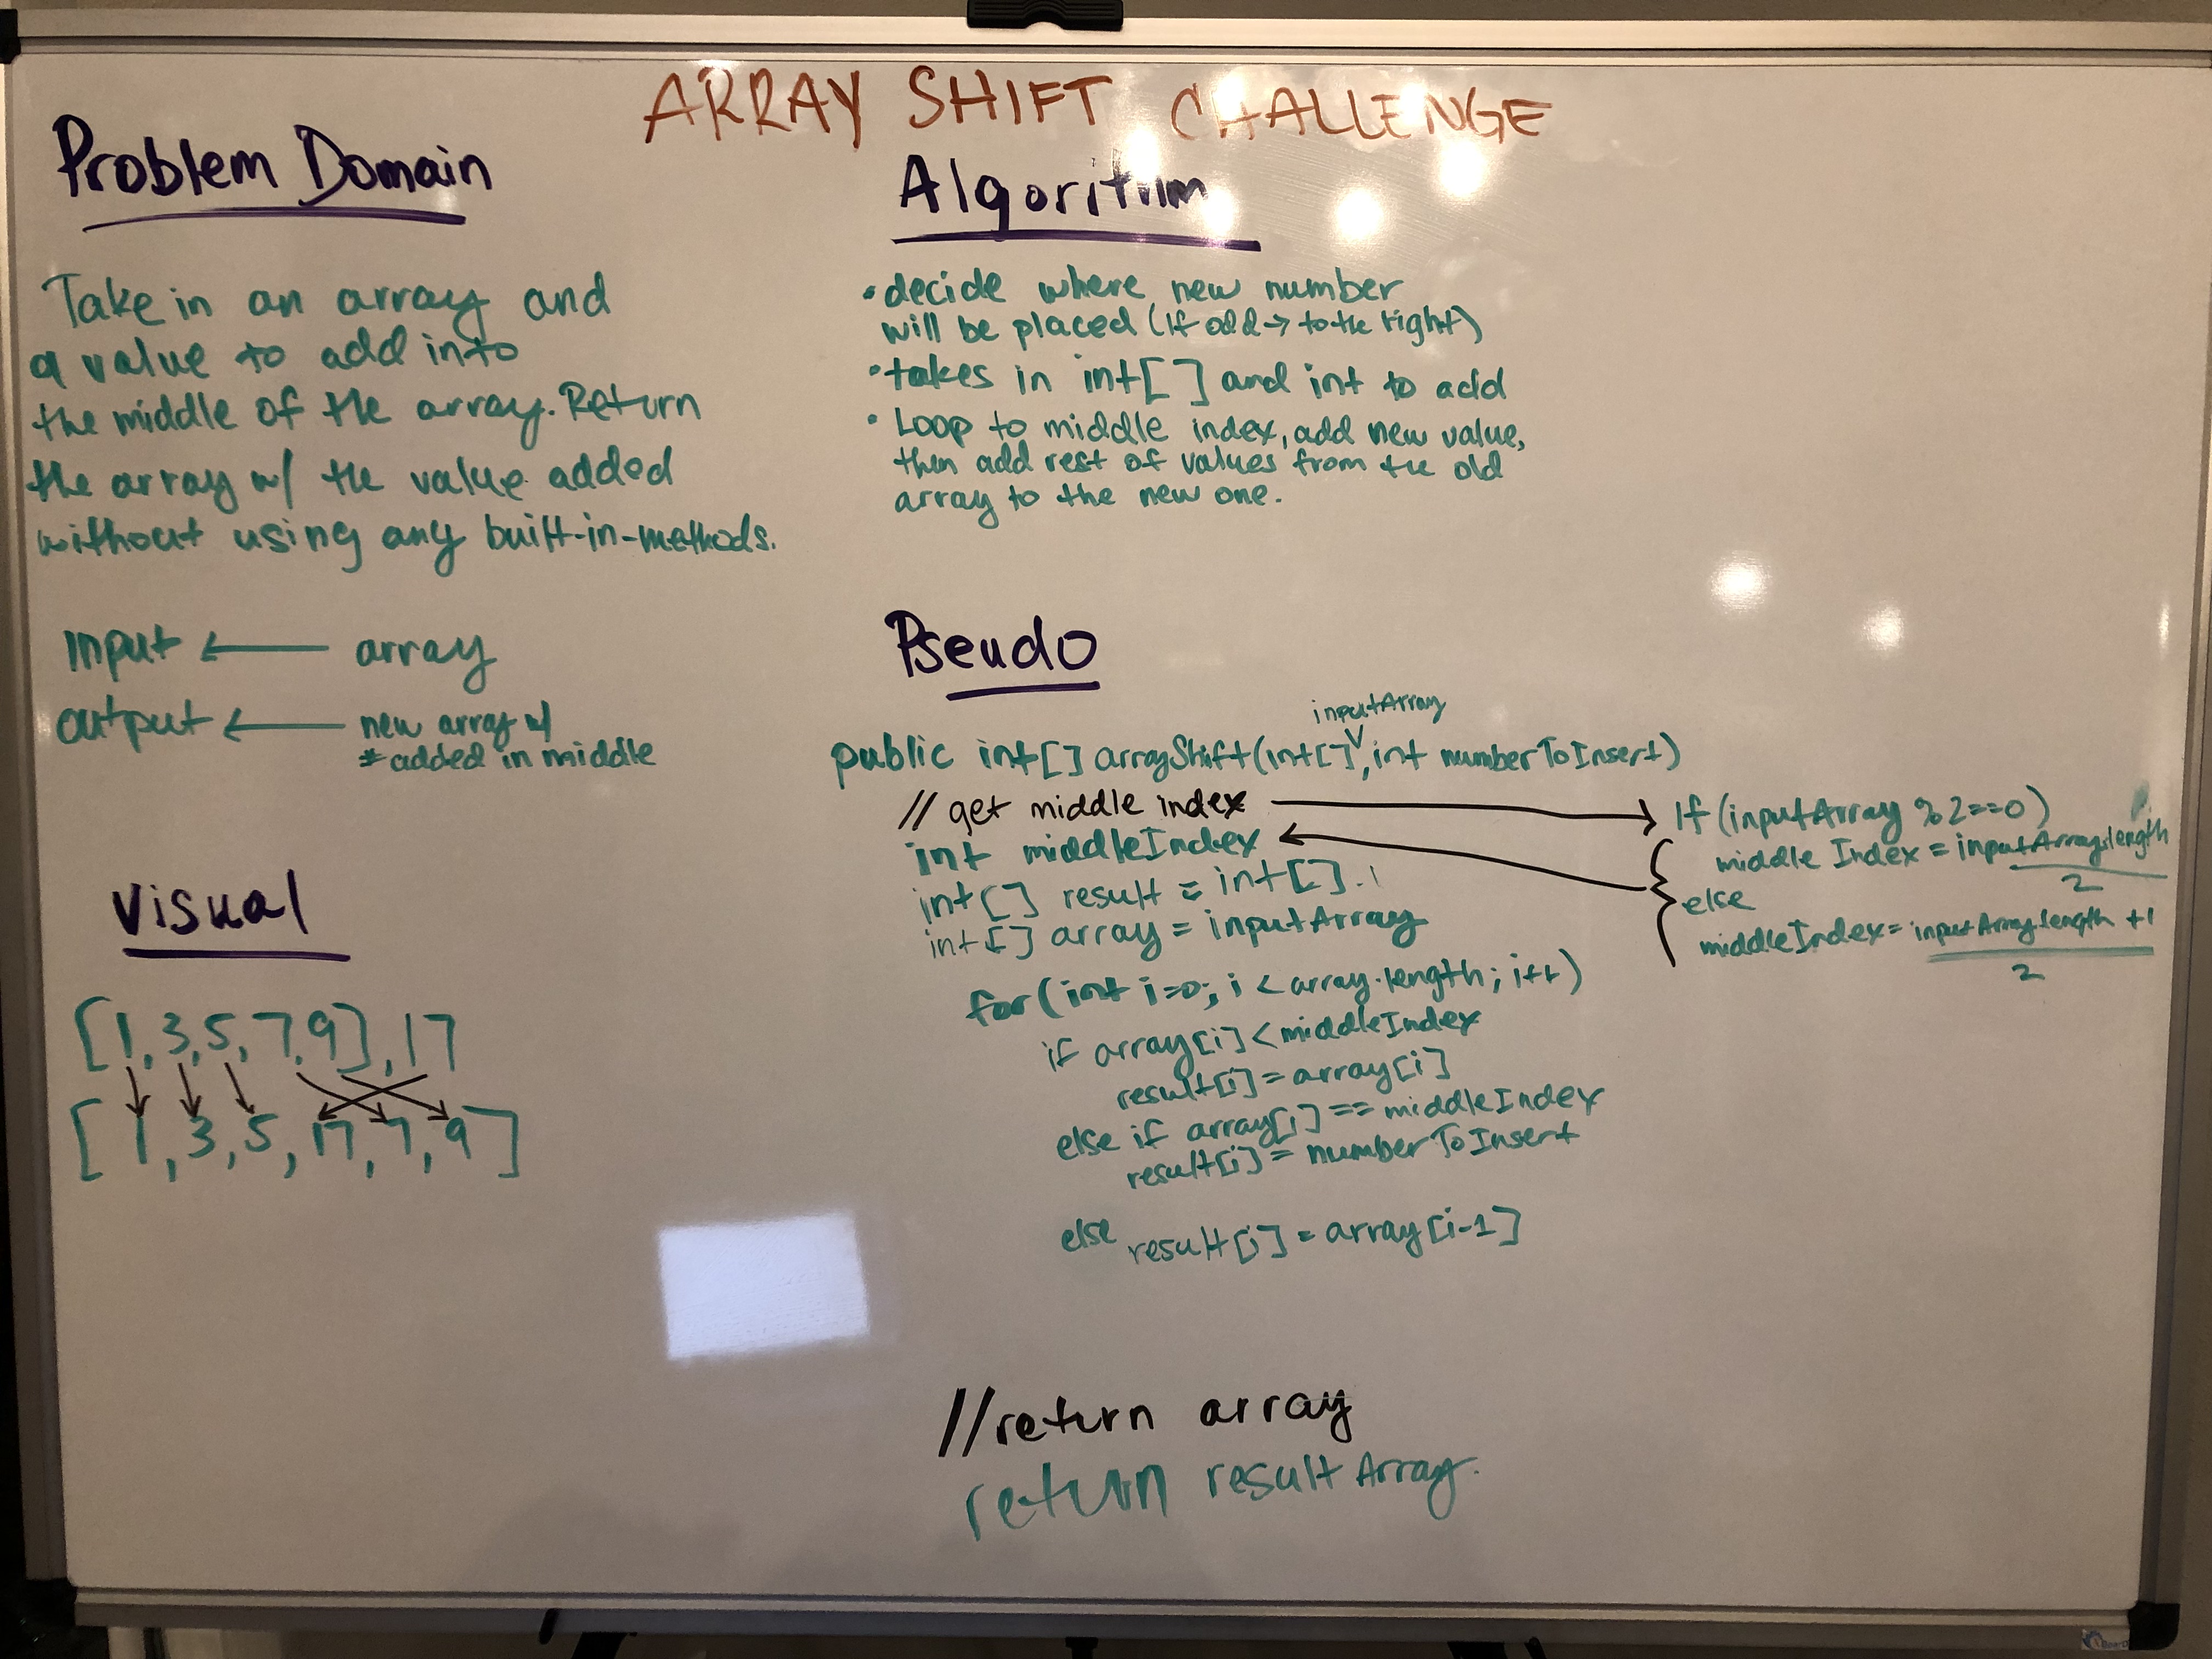 ARRAY SHIFT CHALLENGE
Problem Domain
Take in an array and
a value to add into
the middle of the array. Return
the array w/ the value added
without using any built-in-methods.
Input ← array
output ← new array w/
# added in middle
Visual
[1, 3, 5, 7, 9], 17
[1, 3, 5, 17, 7, 9]
Algorithm
• decide where new number
will be placed (If odd → to the right)
• takes in int[] and int to add
• Loop to middle index, add new value,
then add rest of values from the old
array to the new one.
Pseudo
inputArray
public int[] arrayShift(int[], int numberToInsert)
// get middle index
int middleIndex
int[] result = int[].
int[] array = inputArray
for(int i=0; i < array.length; i++)
if array[i] < middleIndex
result[i] = array[i]
else if array[i] == middleIndex
result[i] = numberToInsert
else result[i] = array[i-1]
//return array
return resultArray.
If (inputArray % 2==0)
middle Index = inputArray.length
2
else
middleIndex = inputArray.length +1
2